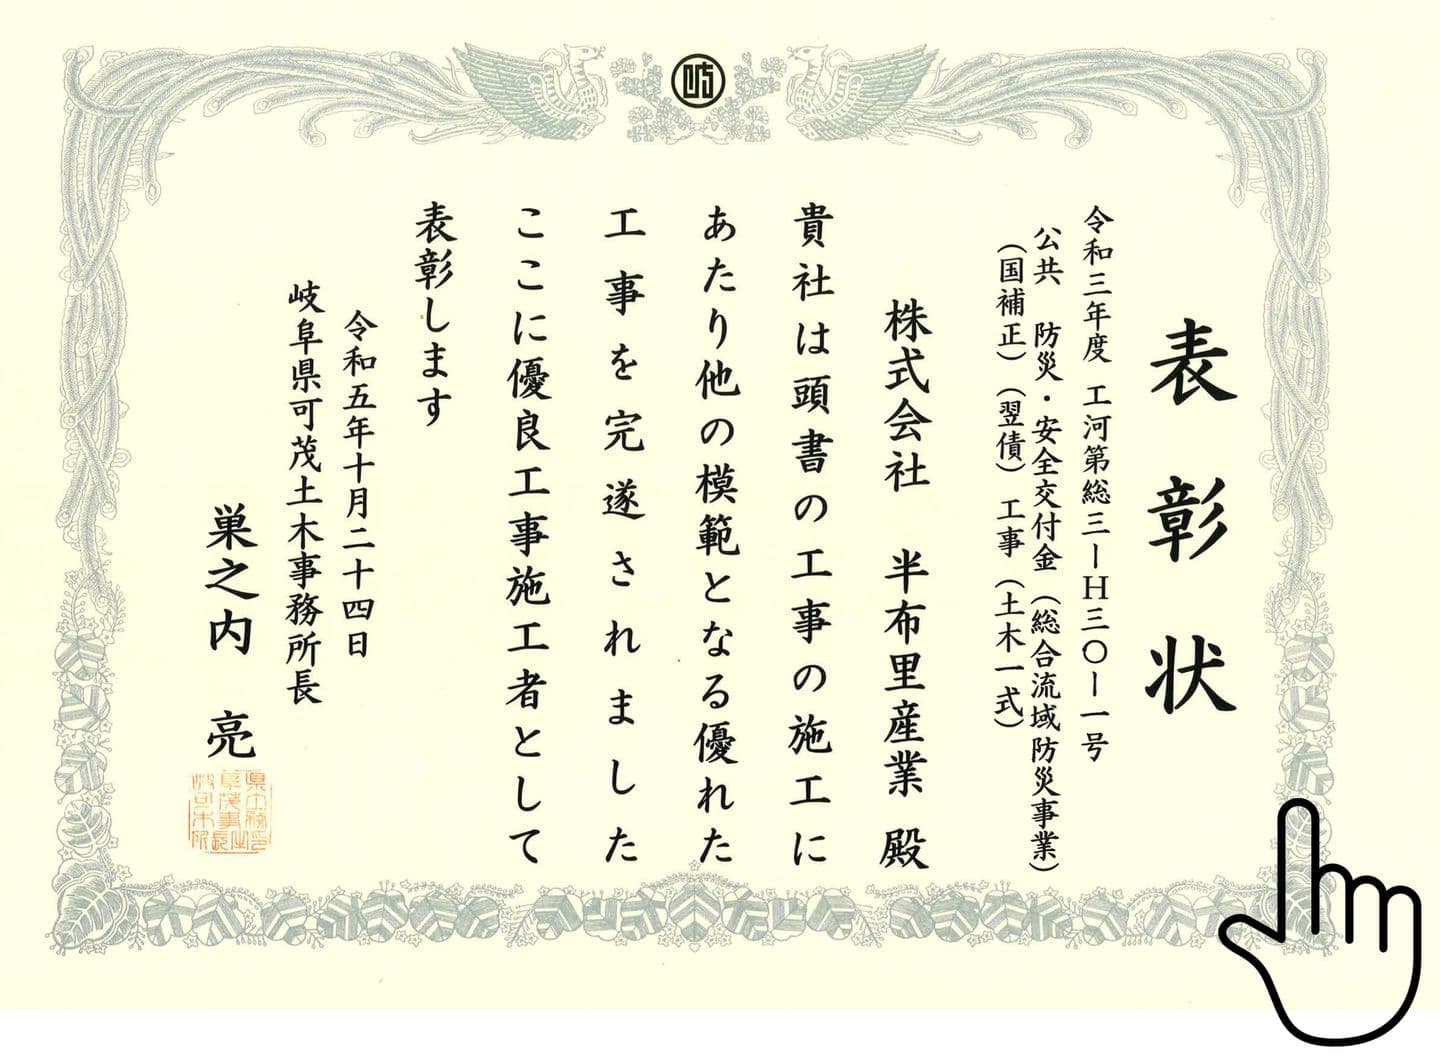 表彰状
令和三年度 工河第総三ーH三〇ー一号
公共 防災・安全交付金（総合流域防災事業）
（国補正）（翌債）工事（土木一式）
株式会社 半布里産業 殿
貴社は頭書の工事の施工に
あたり他の模範となる優れた
工事を完遂されました
ここに優良工事施工者として
表彰します
令和五年十月二十四日
岐阜県可茂土木事務所長
巣之内 亮